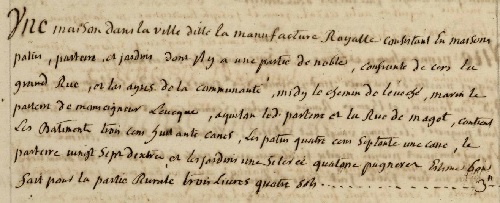 Vne maison dans la ville ditte la manufacture Royalle consistant En maisons
patus, parterre, et jardins dont Il y a une partie de noble, confronte de cers la
grand Rue, et les ayres de la communauté, midy le chemin de leveché, marin le
parterre de monseigneur Leveque, aquilon led. parterre et la Rue de magot, contient
Les Batiments trois cens huittante canes, Les patus quatre cens septante une cane, le
parterre vingt sept dextres et les jardins une seterée quatorze pugneres Estimé
fait pour la partie Rurale trois Livres quatre sols